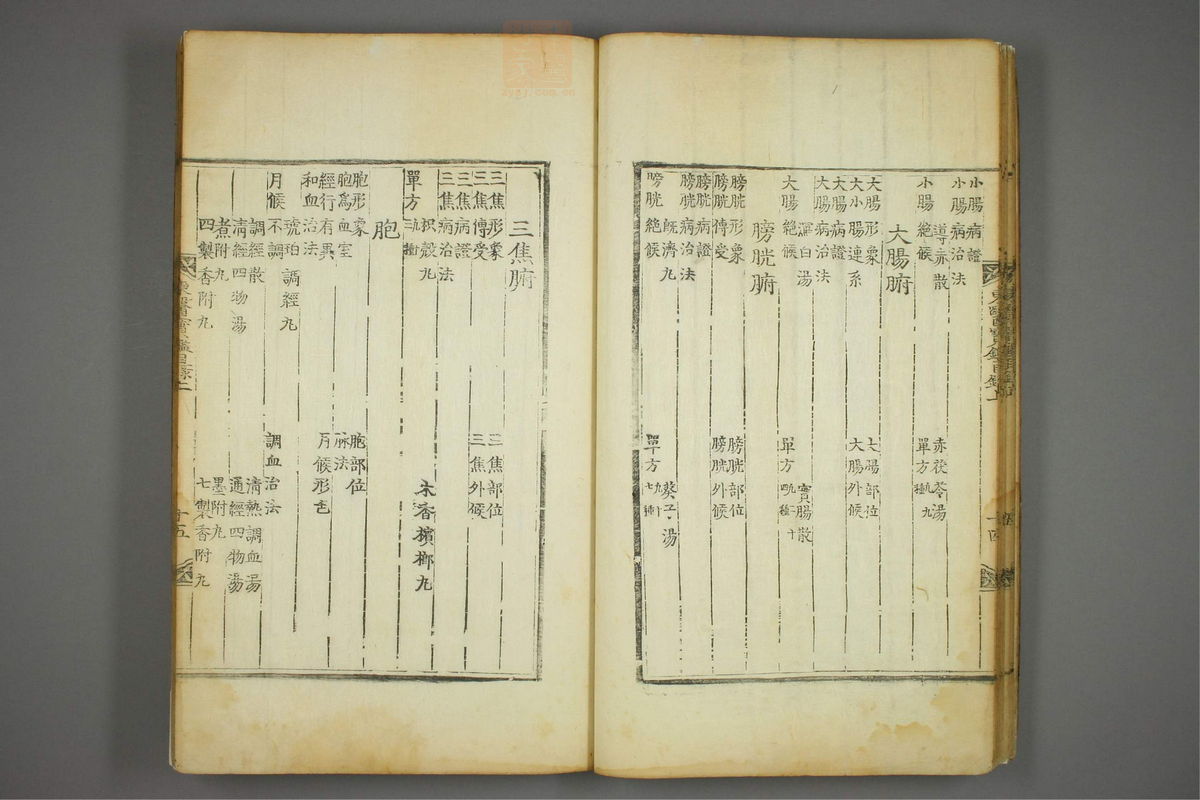 小腸病證
小腸病治法
導赤散
赤茯苓湯
小腸絶候
單方
大腸腑
大腸形象
大腸部位
大小腸連系
大腸外候
大腸病證
大腸病治法
實腸散
大腸絶候
單方
膀胱腑
膀胱形象
膀胱部位
膀胱傳受
膀胱外候
膀胱病證
膀胱病治法
旣濟丸
葵子湯
膀胱絶候
單方
三焦腑
三焦形象
三焦部位
三焦傳受
三焦外候
三焦病證
三焦病治法
枳殼丸
木香檳榔丸
單方
胞
胞形象
胞部位
胞爲血室
脉法
經行有異
月候形色
和血治法
琥珀調經丸
月候不調
調血治法
調經散
淸熱調血湯
淸經四物湯
通經四物湯
煮附丸
墨附丸
四製香附丸
七製香附丸
東醫寶鑑目錄上
十四
東醫寶鑑目錄上
十五
zygj.com.cn